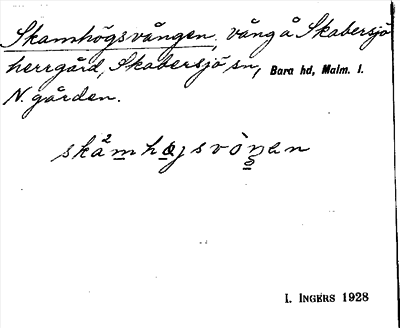 Skamhögsvången, vång å Skabersjö
herrgård, Skabersjö sn, Bara hd, Malm. l.
N. gården.
skå²mhøjsvòŋen
I. INGERS 1928